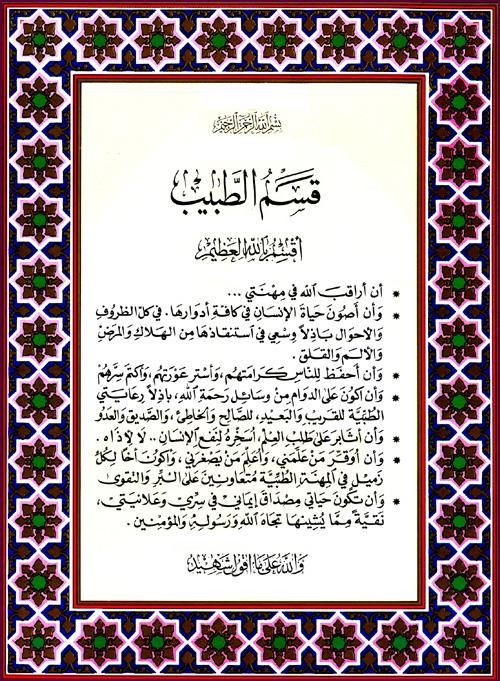 بسم الله الرحمن الرحيم
قسم الطبيب
أقسم بالله العظيم
* أن أراقب الله في مهنتي ...
* وأن أصون حياة الإنسان في كافة أدوارها. في كل الظروف
والأحوال باذلاً وسعي في استنقاذها من الهلاك والمرض
والألم والقلق .
* وأن أحفظ للناس كرامتهم، وأستر عورتهم، وأكتم سرهم
* وأن أكون على الدوام من وسائل رحمة الله، باذلاً رعايتي
الطبية للقريب والبعيد، للصالح والخاطئ، والصديق والعدو
* وأن أثابر على طلب العلم، أسخره لنفع الإنسان .. لا لأذاه .
* وأن أوقر من علمني، وأعلم من يصغرني، وأكون أخا لكل
زميل في المهنة الطبية متعاونين على البر والتقوى
* وأن تكون حياتي مصداق إيماني في سري وعلانيتي،
نقية مما يشينها تجاه الله ورسوله والمؤمنين .
والله على ما أقول شهيد